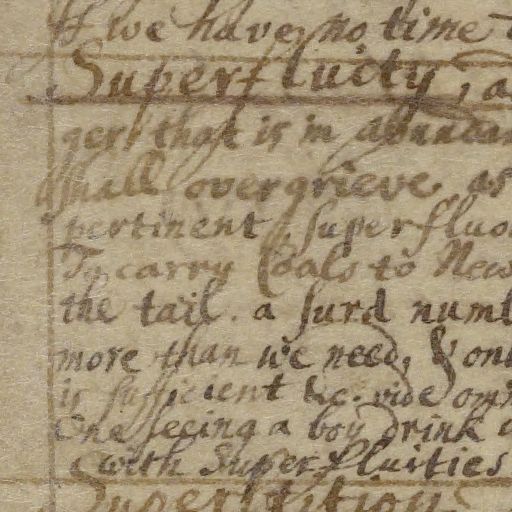 If we have no time
Superfluity, a
ger that is in abundan
shall overgrieve as
pertinent, superfluo
To carry Coals to New
the tail. a surd numb
more than we need, & onl
is sufficient &c. vide om
One seeing a boy drink
with Superfluities
Superstition